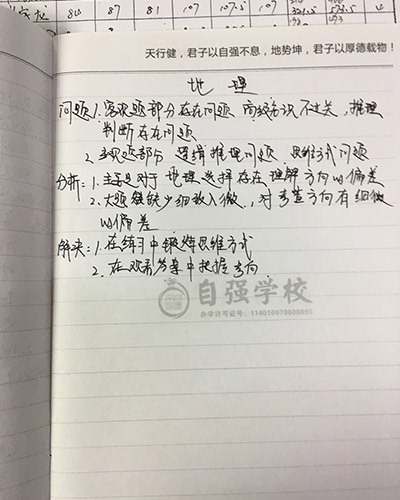 84 87 81 107 107.5 107
天行健，君子以自强不息，地势坤，君子以厚德载物！
地理
问题：1.客观题部分存在问题 高级知识不过关，推理
判断存在问题
2.主观题部分 逻辑推理问题 思维方式问题
分析：1.主要是对于地理选择存在理解方向的偏差
2.大题 缺少细致入微，对考查方向有细微
的偏差
解决：1.在练习中锻炼思维方式
2.在观看答案中把握方向.
自强学校
办学许可证号：114010870000880